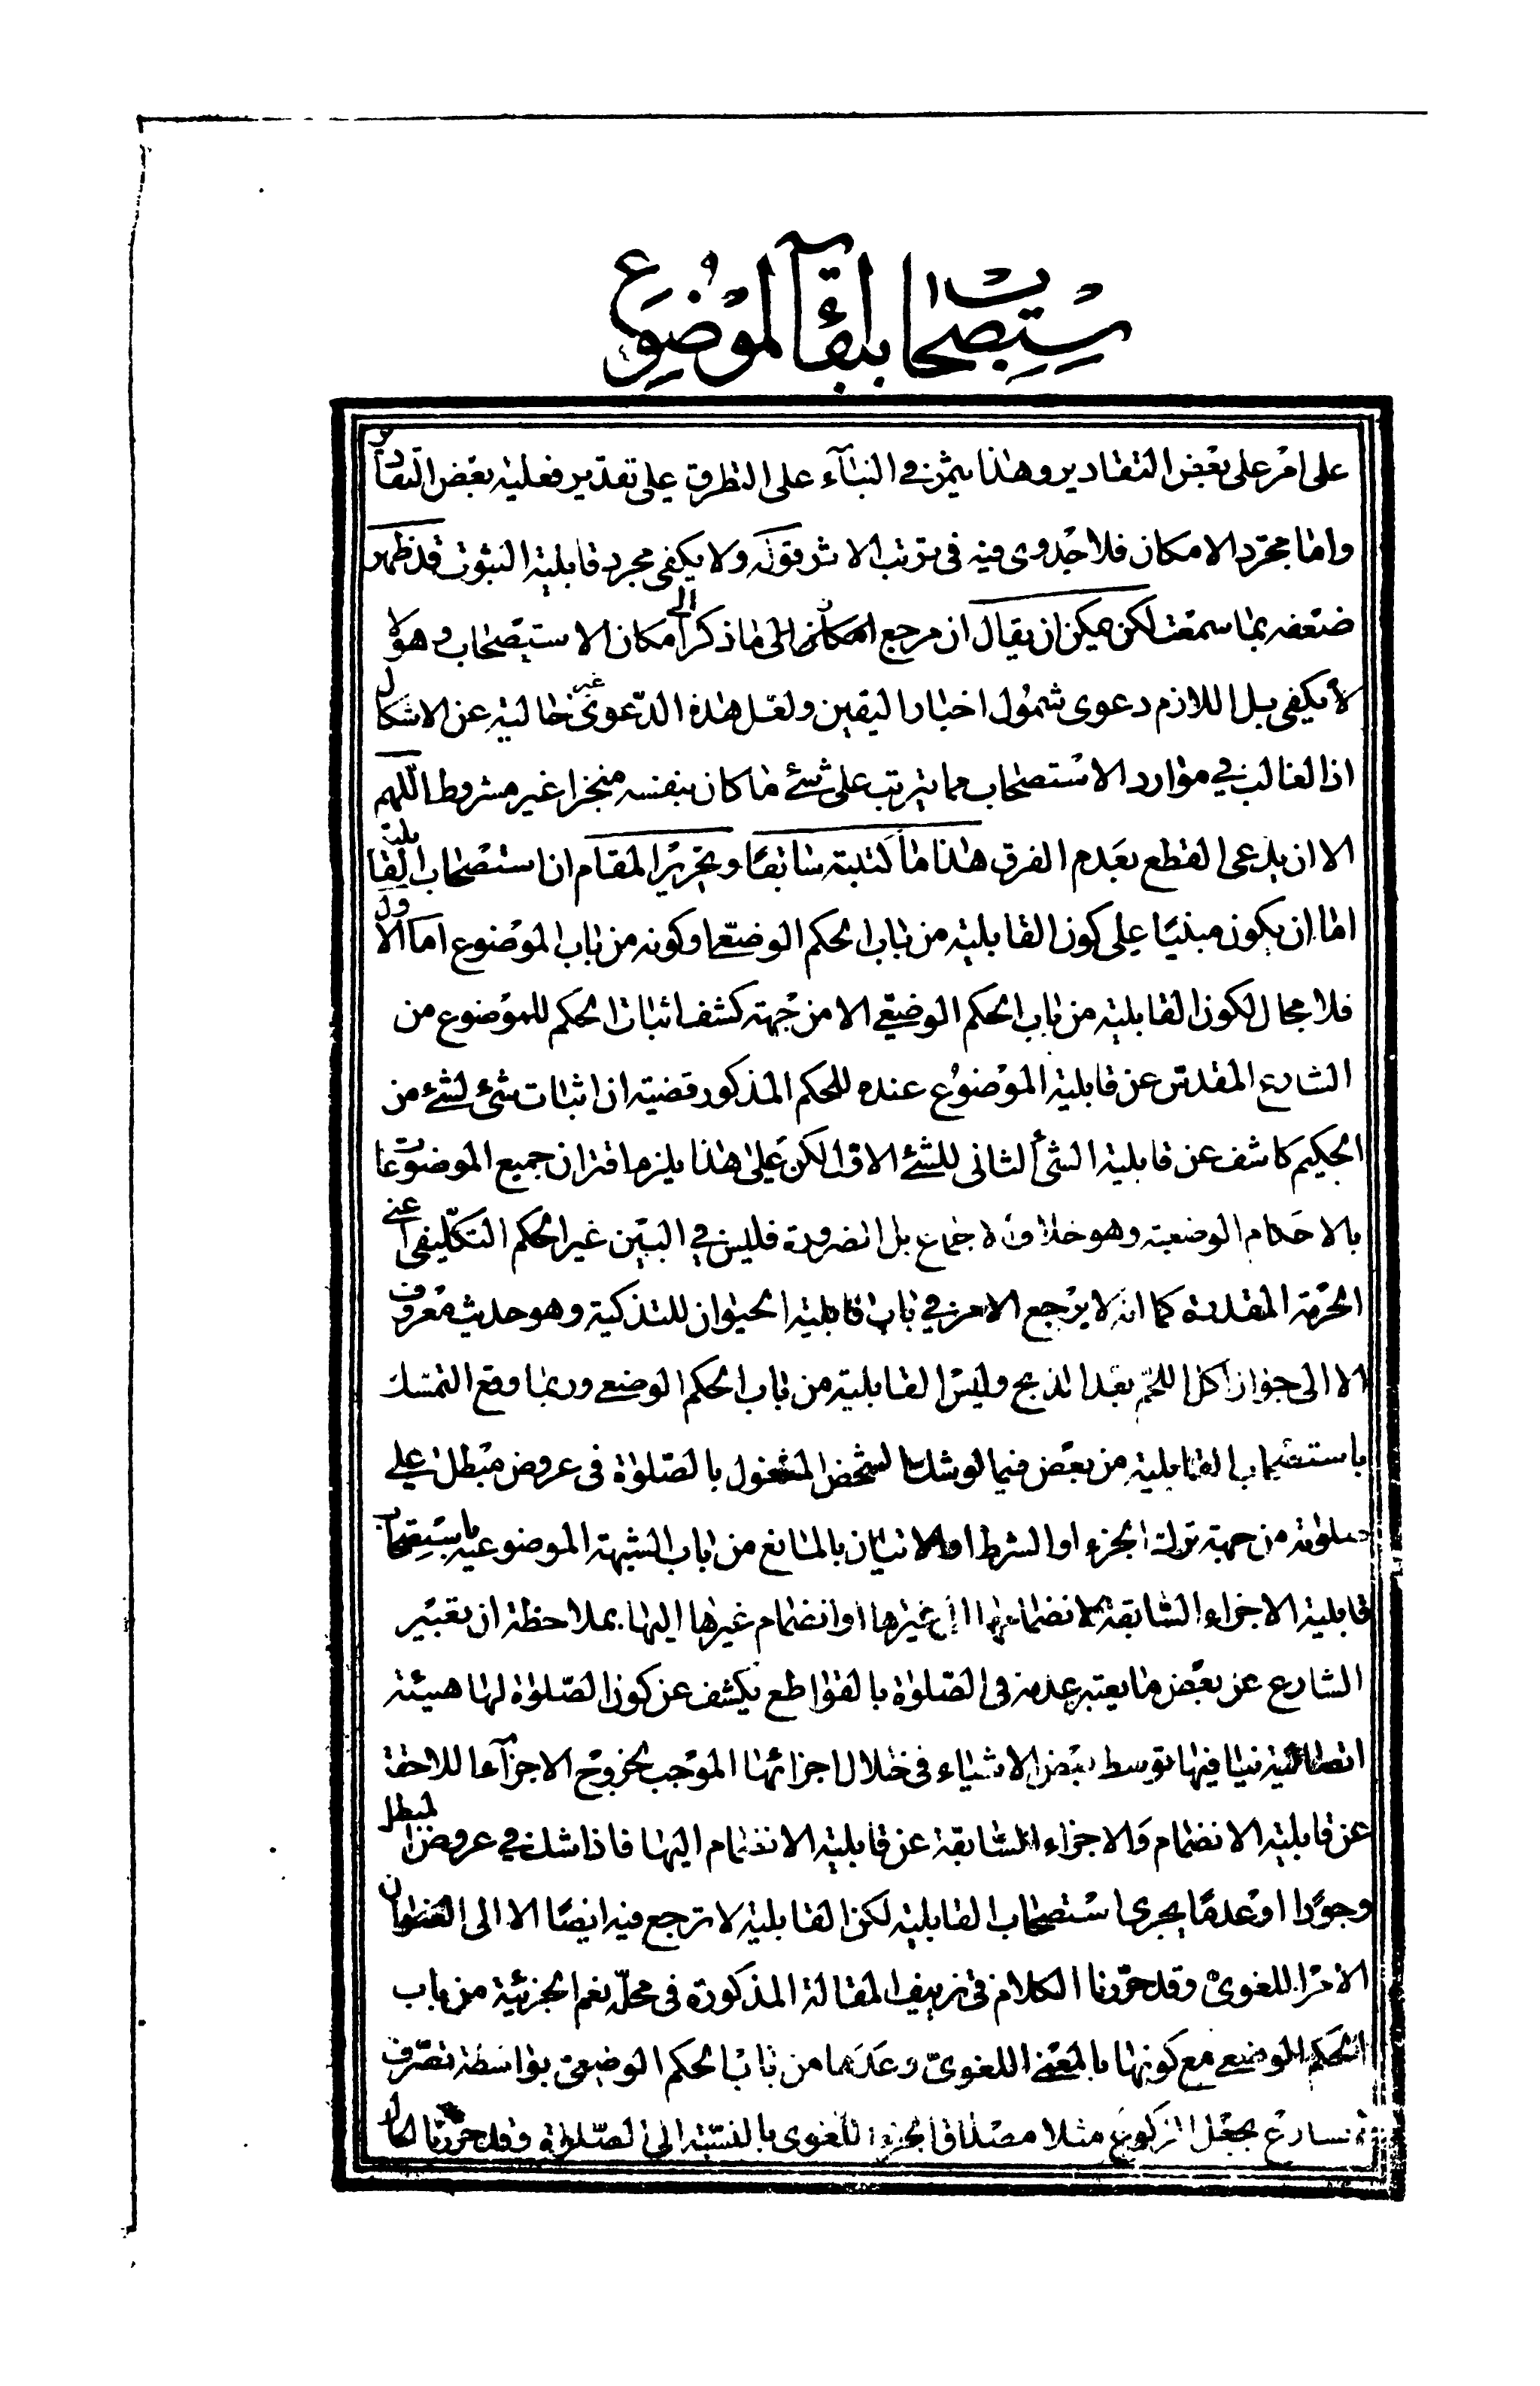 ستصحاب بقآء الموضوع
على امر على بعض التقادير وهذا يثمر في البنآء على التطرق على تقدير فعلية بعض التقادير
واما مجرد الامكان فلا جدوى فيه فى ترتب الاثر قوله ولا يكفى مجرد قابلية الثبوت قد ظهر
ضعفه بما سمعت لكن يمكن ان يقال ان مرجع الى ما ذكر الى امكان الاستصحاب وهو لا
لا يكفى بل اللازم دعوى شمول اخبار اليقين ولعل هذه الدعوى غير خالية عن الاشكال
اذ الغالب في موارد الاستصحاب مما يترتب على شئ ما كان بنفسه منجزا غير مشروط اللهم
الا ان يدعى القطع بعدم الفرق هذا ما كتبته سابقا وتحرير المقام ان استصحاب القابلية
اما ان يكون مبنيا على كون القابلية من باب الحكم الوضعى او كونه من باب الموضوع اما الاول
فلا مجال لكون القابلية من باب الحكم الوضعى الا من جهة كشف اثبات الحكم للموضوع من
الشارع المقدس عن قابلية الموضوع عنده للحكم المذكور قضية ان اثبات شئ لشئ من
الحكيم كاشف عن قابلية الشئ الثانى للشئ الاول لكن على هذا يلزم اقتران جميع الموضوعات
بالاحكام الوضعية وهو خلاف الاجماع بل الضرورة فليس في البين غير الحكم التكليفى اعنى
الحرمة المقدرة كما انه لا يرجع الامر في باب قابلية الحيوان للتذكية وهو حديث معروف
الا الى جواز اكل اللحم بعد الذبح وليس القابلية من باب الحكم الوضعى وربما وقع التمسك
باستصحاب القابلية من بعض فيما لو شك الشخص المشغول بالصلوة فى عروض مبطل على
صلوته من جهة ترك الجزء او الشرط او الاتيان بالمانع من باب الشبهة الموضوعية باستصحاب
قابلية الاجزاء السابقة لانضمامها الى غيرها او انضمام غيرها اليها بملاحظة ان تعبير
الشارع عن بعض ما يعتبر عدمه فى الصلوة بالقواطع يكشف عن كون الصلوة لها هيئة
اتصالية ينافيها توسط بعض الاشياء فى خلال اجزائها الموجب لخروج الاجزآء اللاحقة
عن قابلية الانضمام والاجزاء السابقة عن قابلية الانضمام اليها فاذا شك في عروض المبطل
وجودا او عدما يجرى استصحاب القابلية لكن القابلية لا ترجع فيه ايضا الا الى العنوان
الامر اللغوى وقد حررنا الكلام فى تزييف المقالة المذكورة فى محله نعم الجزئية من باب
الحكم الوضعى مع كونها بالمعنى اللغوى وعدها من باب الحكم الوضعى بواسطة تصرف
الشارع بجعل الركوع مثلا مصداقا للجزء اللغوى بالنسبة الى الصلوة وقد حررنا الحال